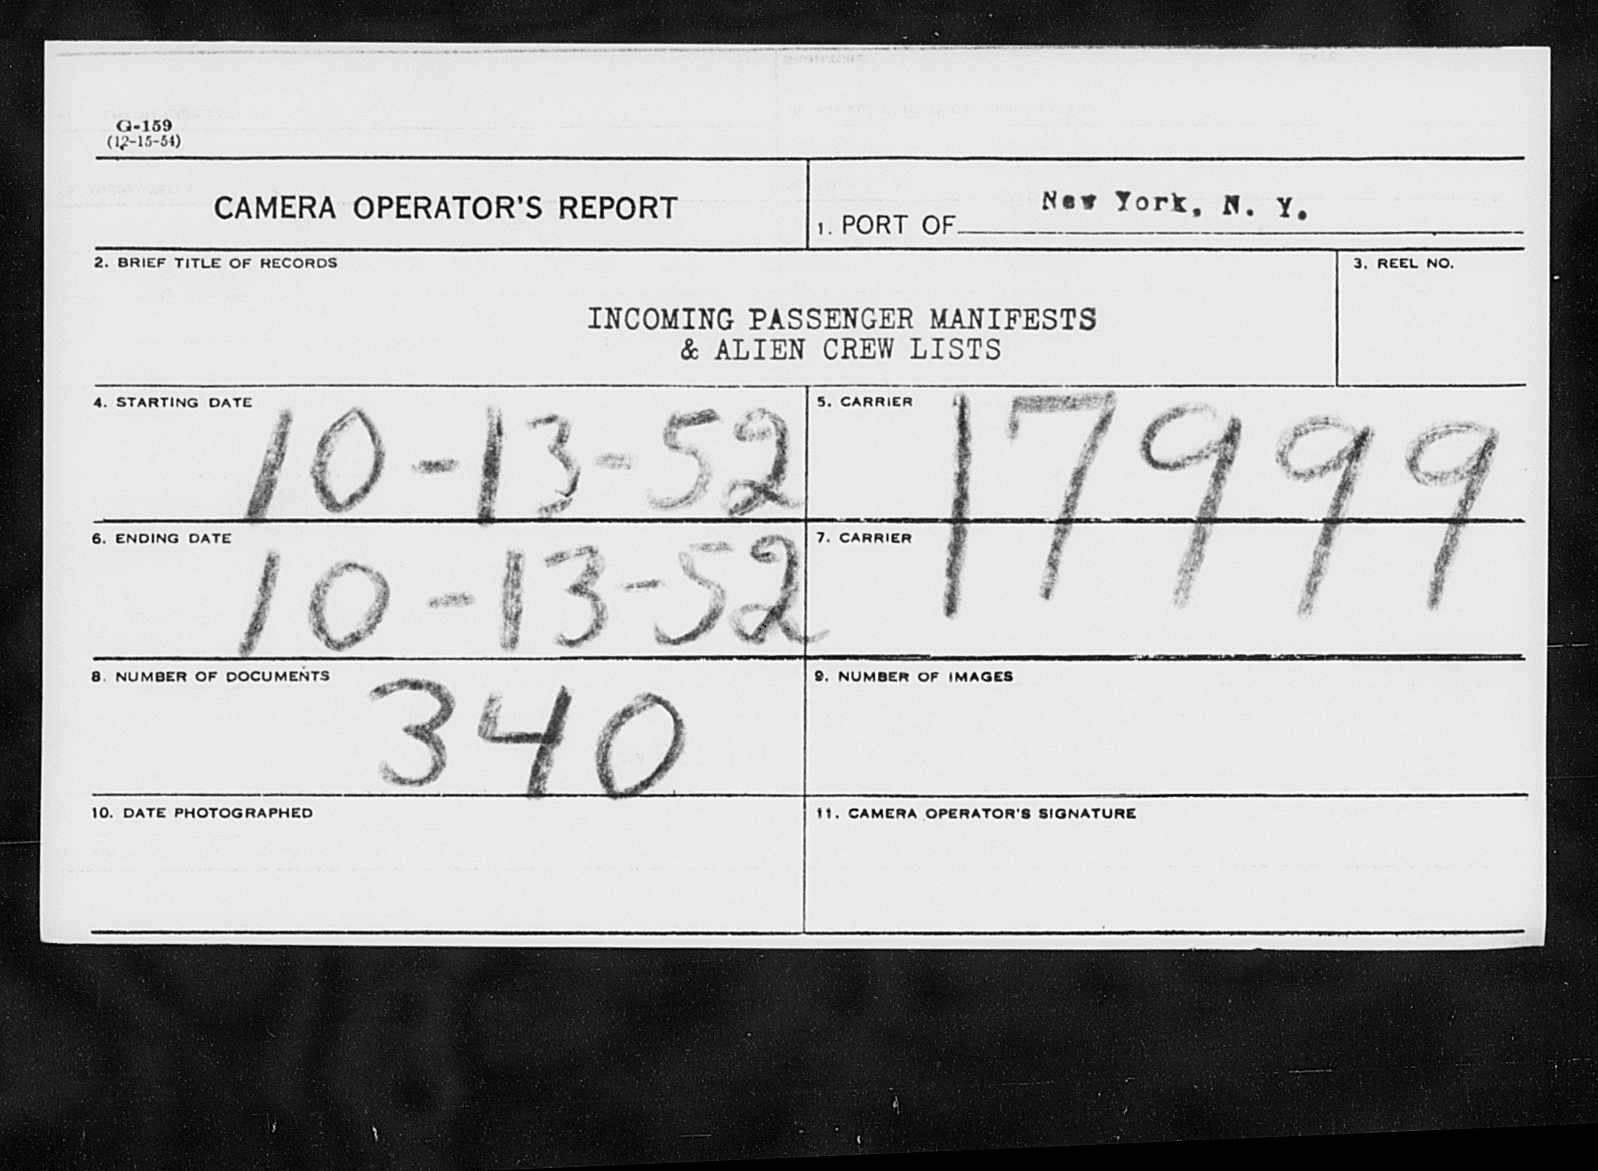 G-159
(12-15-54)
CAMERA OPERATOR'S REPORT
1. PORT OF New York, N. Y.
2. BRIEF TITLE OF RECORDS
3. REEL NO.
INCOMING PASSENGER MANIFESTS
& ALIEN CREW LISTS
4. STARTING DATE
10-13-52
5. CARRIER
17999
6. ENDING DATE
10-13-52
7. CARRIER
8. NUMBER OF DOCUMENTS
340
9. NUMBER OF IMAGES
10. DATE PHOTOGRAPHED
11. CAMERA OPERATOR'S SIGNATURE